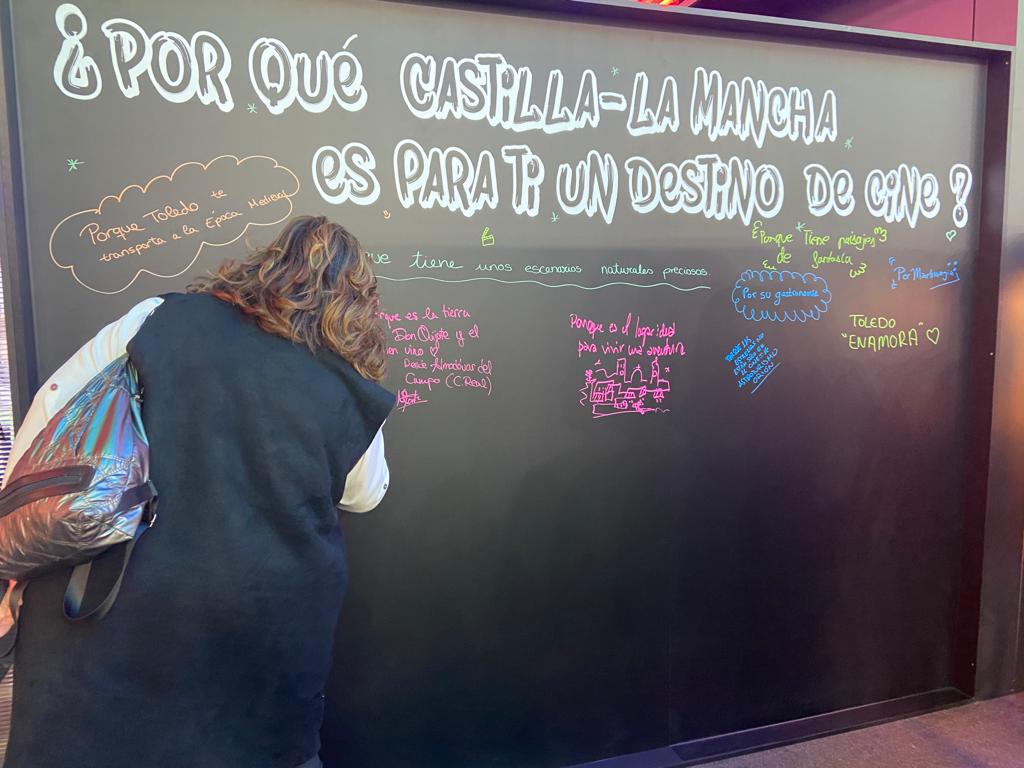 ¿POR QUÉ CASTILLA-LA MANCHA
ES PARA TI UN DESTINO DE CINE?
Porque Toledo te
transporta a la Época
tiene unos escenarios naturales preciosos.
es la tierra
Don Quijote y el
vino
Desde Almodóvar del
Campo (C. Real)
Porque es el lugar ideal
para vivir una aventura
Porque Tiene paisajes
de fantasía
Por su gastronomía
Por
TOLEDO
"ENAMORA"